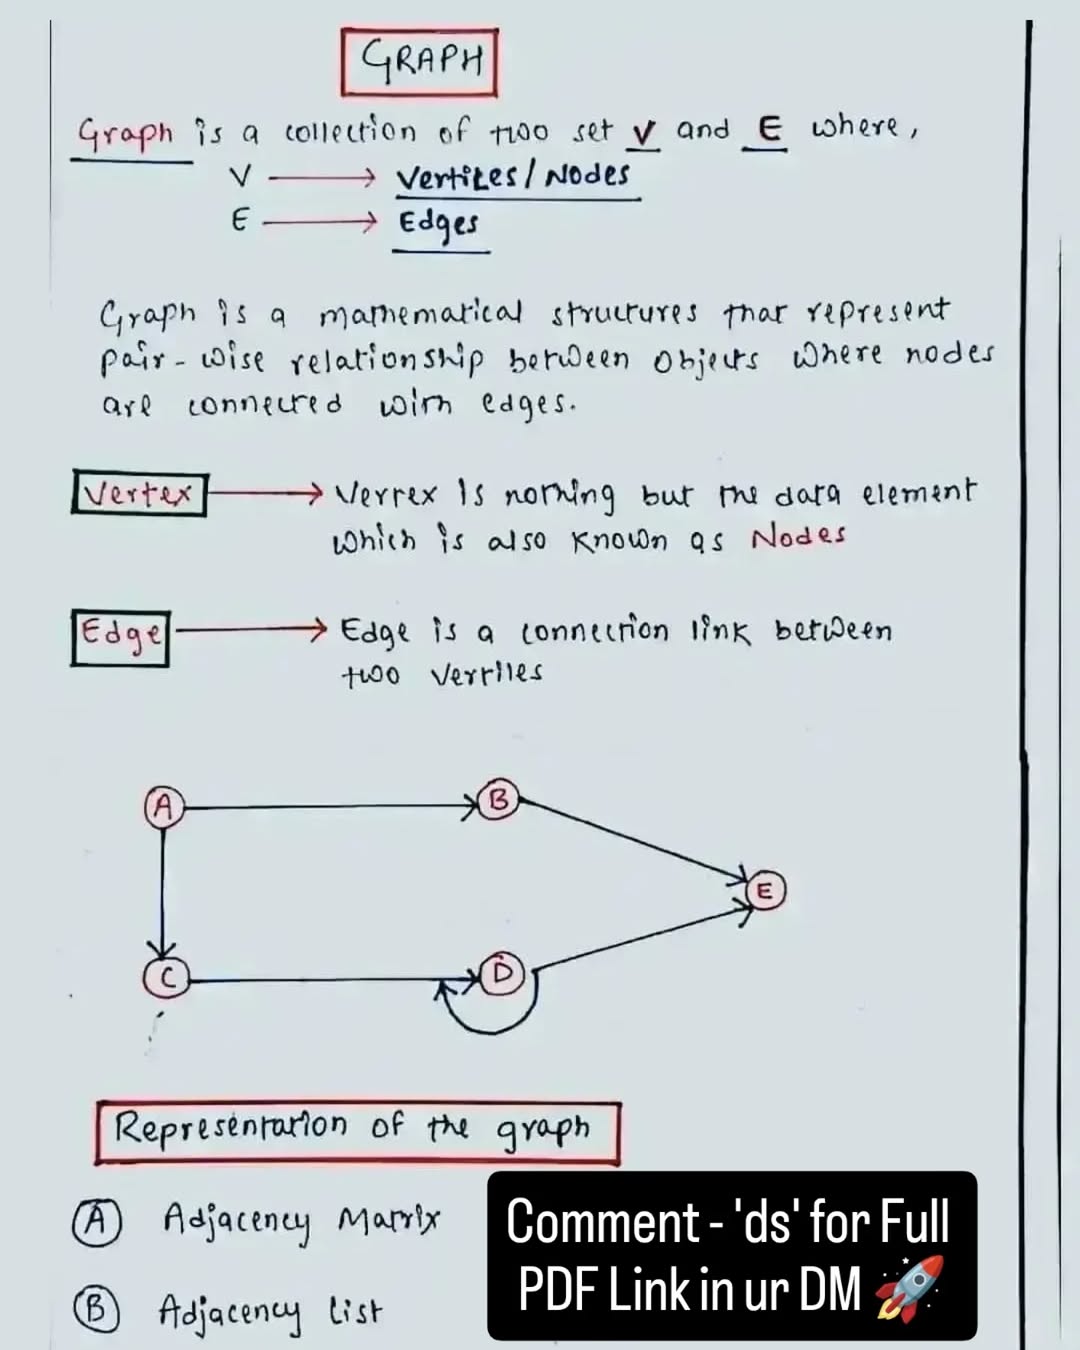 GRAPH
Graph is a collection of two set V and E where,
V → Vertices/Nodes
E → Edges
Graph is a mathematical structures that represent
pair-wise relationship between objects where nodes
are connected with edges.
Vertex → Vertex is nothing but the data element
which is also known as Nodes
Edge → Edge is a connection link between
two vertices
A
B
E
C
D
Representation of the graph
A Adjacency Matrix
B Adjacency list
Comment - 'ds' for Full
PDF Link in ur DM 🚀